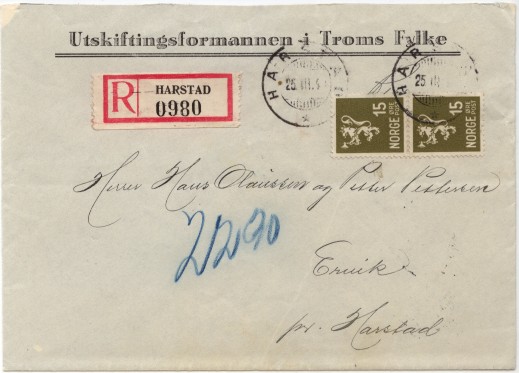 Utskiftingsformannen i Troms Fylke
R HARSTAD
0980
HAR
25 III.
HAR
25 III
15 ØRE POST NORGE
15 ØRE POST NORGE
Herrer Hans Olaussen og Peter Pettersen
2290
Ervik
pr. Harstad